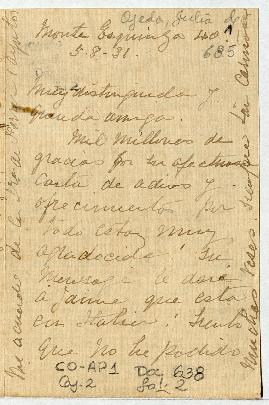 Ojeda, Julia de 1
Monte Esquinza 40.
685
5-8-31.
Muy distinguida y
querida amiga.
Mil millones de
gracias por su afectuosa
carta de adios y
ofrecimientos por
todo estoy muy
agradecida! Su
mensaje le daré
a Jaime que está
en Italia! Siento
que no he podido
CO-AP1
Caj. 2
Doc 638
Fol: 2
Me acuerdo de la
muchas veces siempre tan cariñosa